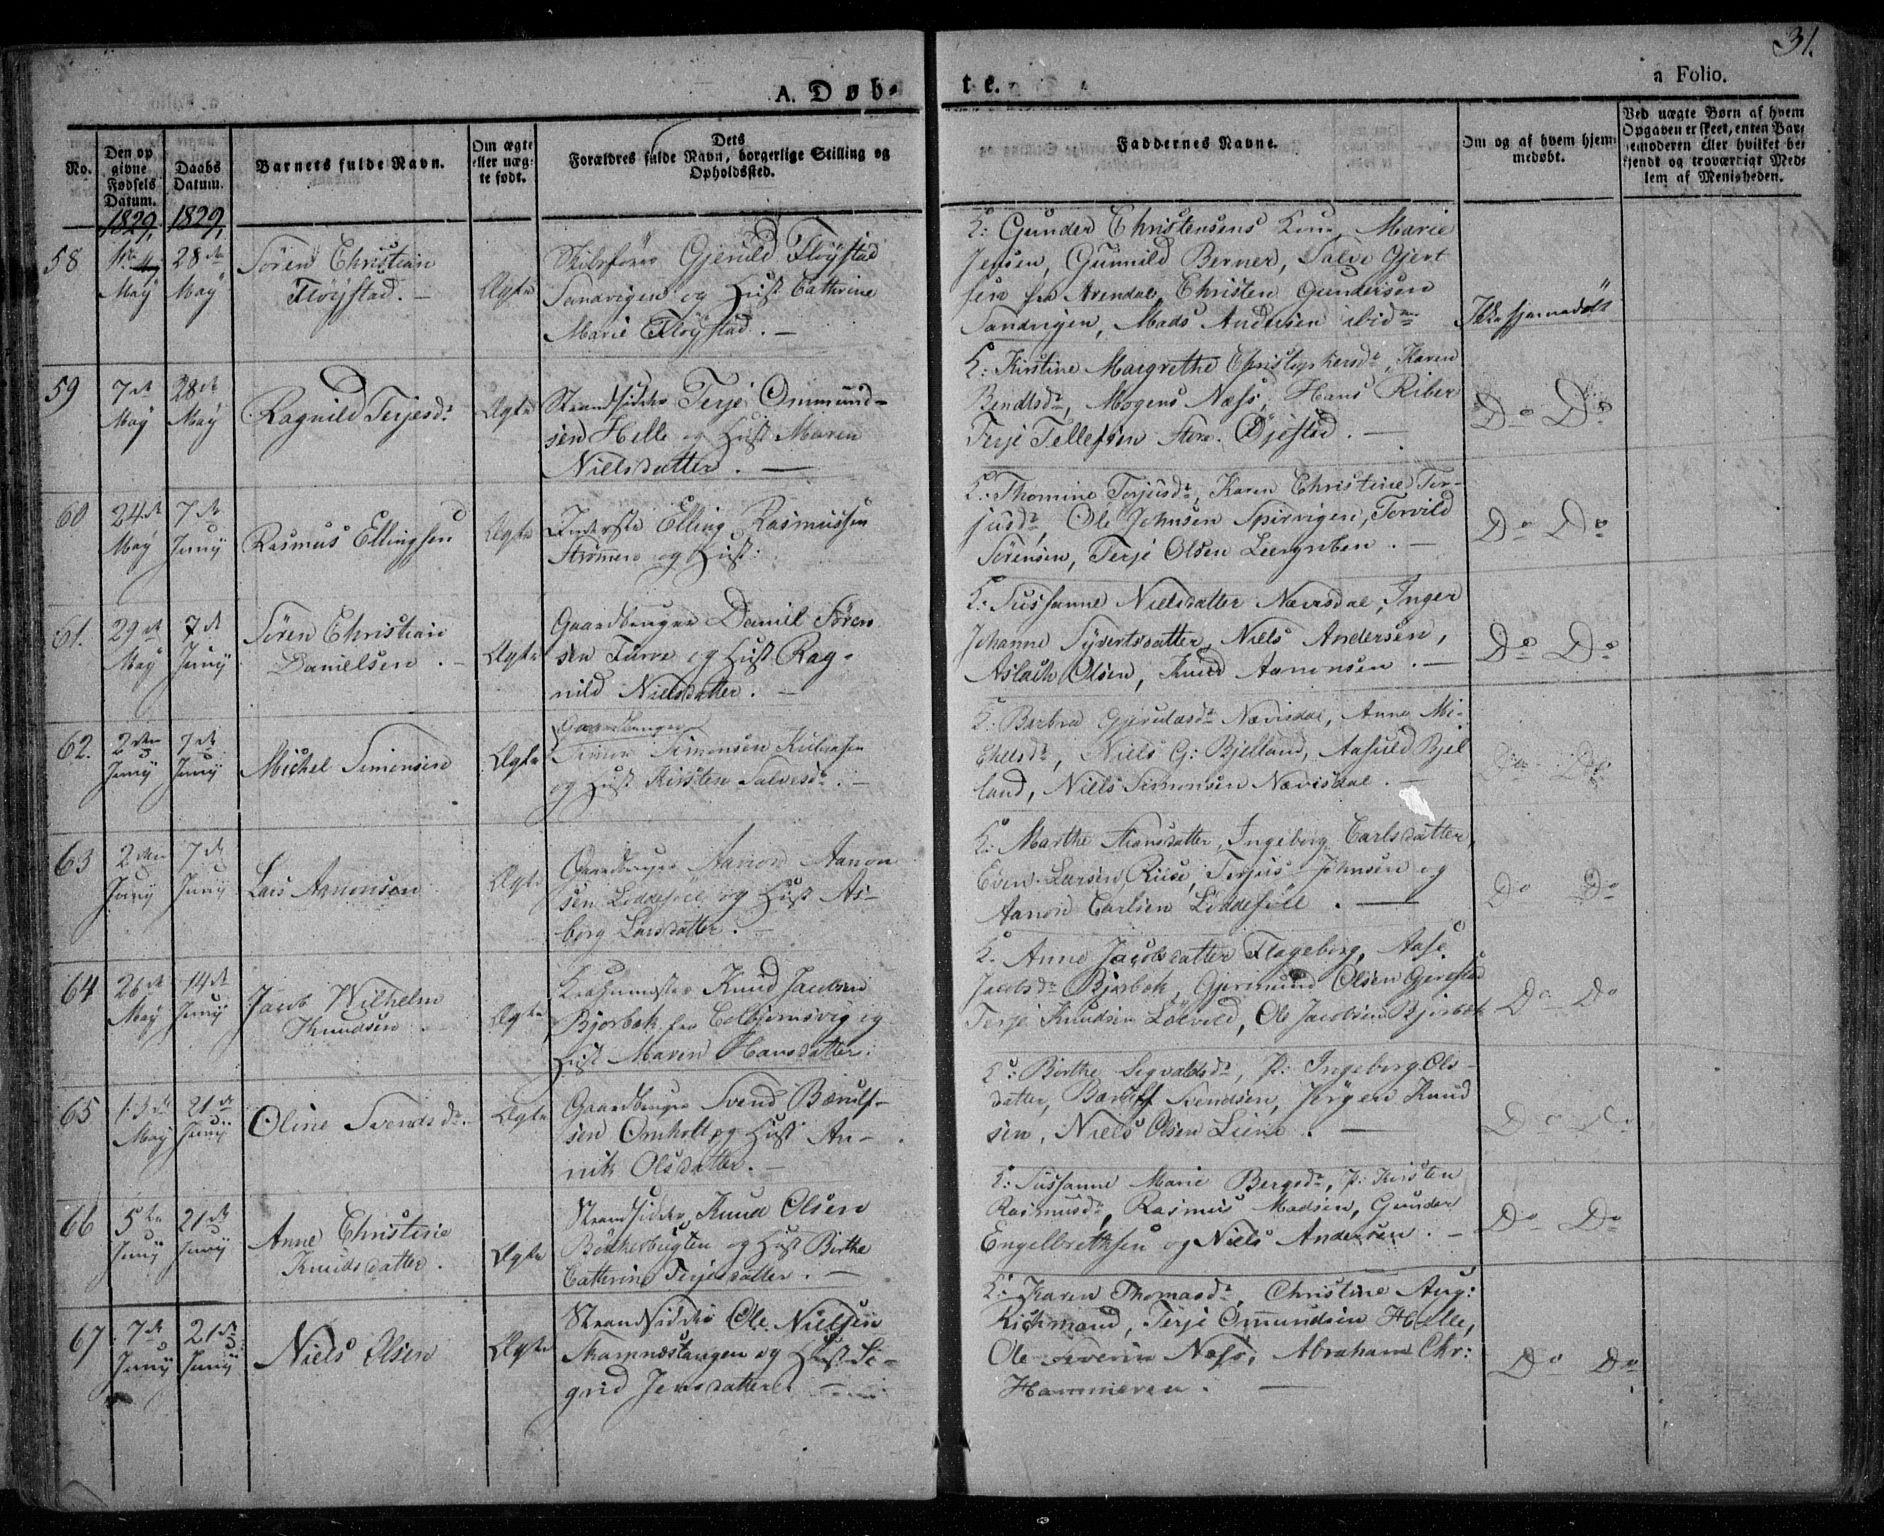 31.
A. Døb-
te.
a Folio.
No.
Den op
givne
Fødsels
Datum.
Daabs
Datum.
Barnets fulde Navn.
Om ægte
eller uæg-
te født.
Dets
Forældres fulde Navn, borgerlige Stilling og
Opholdssted.
Faddernes Navne.
Om og af hvem hjem-
medøbt.
Ved uægte Børn af hvem
Opgaven er skeet, enten Bar-
nemoderen eller hvilket be-
kjendt og troværdigt Med-
lem af Menigheden.
1829, 1829,
58
May
28de
May
Søren Christian
Fløystad. -
Ægte
Skibsfører Gjeruld Fløystad
Sandvigen og Hust Cathrine
Marie Fløystad. -
K: Gunder Christensens Kone, Marie
Jensen, Gunnild Berner, Salve Gjert
sen fra Arendal, Christen Gundersen
Sandvigen, Mads Andersen ibidm
Ikke hjemmedøbt
59
7de
May
28de
May
Ragnild Terjesdr
Ægte
Strandsidder Terje Ommund-
sen Helle og Hust Maren
Nielsdatter. -
K: Kirstine Margrethe Christophersdr, Karen
Bendtsdr, Mogens Næss, Hans Riber
Terje Tellefsen Store Øjestad. -
Do Do
60
24de
May
7de
Juny
Rasmus Ellingsen
Ægte
Inderste Elling Rasmussen
Strømmen og Hust:
K: Thomine Terjusdr, Karen Christine Ter-
jusdr, Ole Johnsen Spirvigen, Torvild
Sørensen, Terje Olsen Leergruben. -
Do Do
61.
29de
May
7de
Juny
Søren Christian
Danielsen. -
Ægte
Gaardbruger Daniel Søren
sen Furre og Hust Rag-
nild Nielsdatter. -
K: Sussanne Nielsdatter Nævisdal, Inger
Johanne Syvertsdatter, Niels Andersen,
Aslach Olsen, Knud Aanonsen. -
Do Do
62.
2den
Juny
7de
Juny
Michel Simonsen
Ægte
Gaardbruger
Simon Simonsen
og Hust Kirsten Salvesdr. -
K: Barbra Gjeruldsdr Nævisdal, Anne Mi-
chelsdr, Niels G: Bjelland, Aasuld Bjel
land, Niels Simonsen Nævisdal. -
Do Do
63
2den
Juny
7de
Juny
Lars Aanonsen
Ægte
Gaardbruger Aanon Aanon
sen Løddesøll og Hust As-
borg Larsdatter. -
K: Marthe Hansdatter, Ingeborg Carlsdatter,
Even Larsen Riise, Terjus Johnsen og
Aanon Carlsen Løddesøll. -
Do Do
64
26de
May
14de
Juny
Jacob Wilhelm
Knudsen
Ægte
Knud Jacobsen
Bjorbek fra Colbjørnsvig og
Hust Maren Hansdatter.
K: Anne Jacobsdatter Flageborg, Aase
Jacobsdr Bjorbek, Gjermund Olsen Gjerestad
Terje Knudsen Løevold, Ole Jacobsen Bjorbek
Do Do
65
13de
May
21de
Juny
Oline Svendsdr.
Ægte
Gaardbruger Svend Bærulf-
sen Omholt og Hust An-
nik Olsdatter. -
K: Birthe Sigvaldsdr, p: Ingeborg Ols-
datter, Bærulf Svendsen, Jørgen Knud
sen, Niels Olsen Liene. -
Do Do
66
5te
Juny
21de
Juny
Anne Christine
Knudsdatter.
Ægte
Strandsidder Knud Olsen
Bøkkerbugten og Hust Birthe
Cathrine Terjesdatter. -
K: Sussanne Marie Bergsdr, p: Kirsten
Rasmusdr, Rasmus Madsen, Gunder
Engelbrethsen og Niels Andersen. -
Do Do
67
7de
Juny
21de
Juny
Niels Olsen
Ægte
Strandsidder Ole Nielsen
Skarpnæstangen og Hust Si-
grid Jensdatter. -
K: Karen Thomasdr, Christine Aug:
Richmand, Terje Omundsen Helle,
Ole Severin Næss, Abraham Chr:
Hammeren. -
Do Do